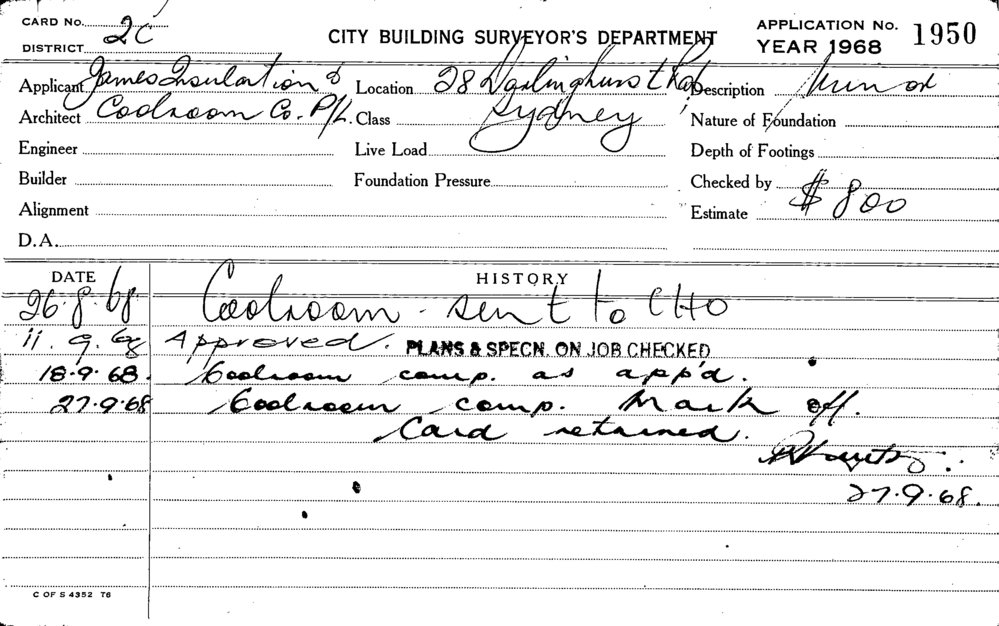 CARD No.
DISTRICT 2C
CITY BUILDING SURVEYOR'S DEPARTMENT
APPLICATION No. 1950
YEAR 1968
Applicant James Insulation &
Location 28 Darlinghurst Rd
Description
Architect Coolroom Co. P/L.
Class Sydney
Nature of Foundation
Engineer
Live Load
Depth of Footings
Builder
Foundation Pressure
Checked by
Alignment
Estimate $800
D.A.
DATE HISTORY
26.8.68 Coolroom - sent to CHO
11.9.68 Approved. PLANS & SPECN. ON JOB CHECKED
18.9.68. Coolroom comp. as app'd.
27.9.68 Coolroom comp. Mark off.
Card returned.
27.9.68.
C OF S 4352 T6